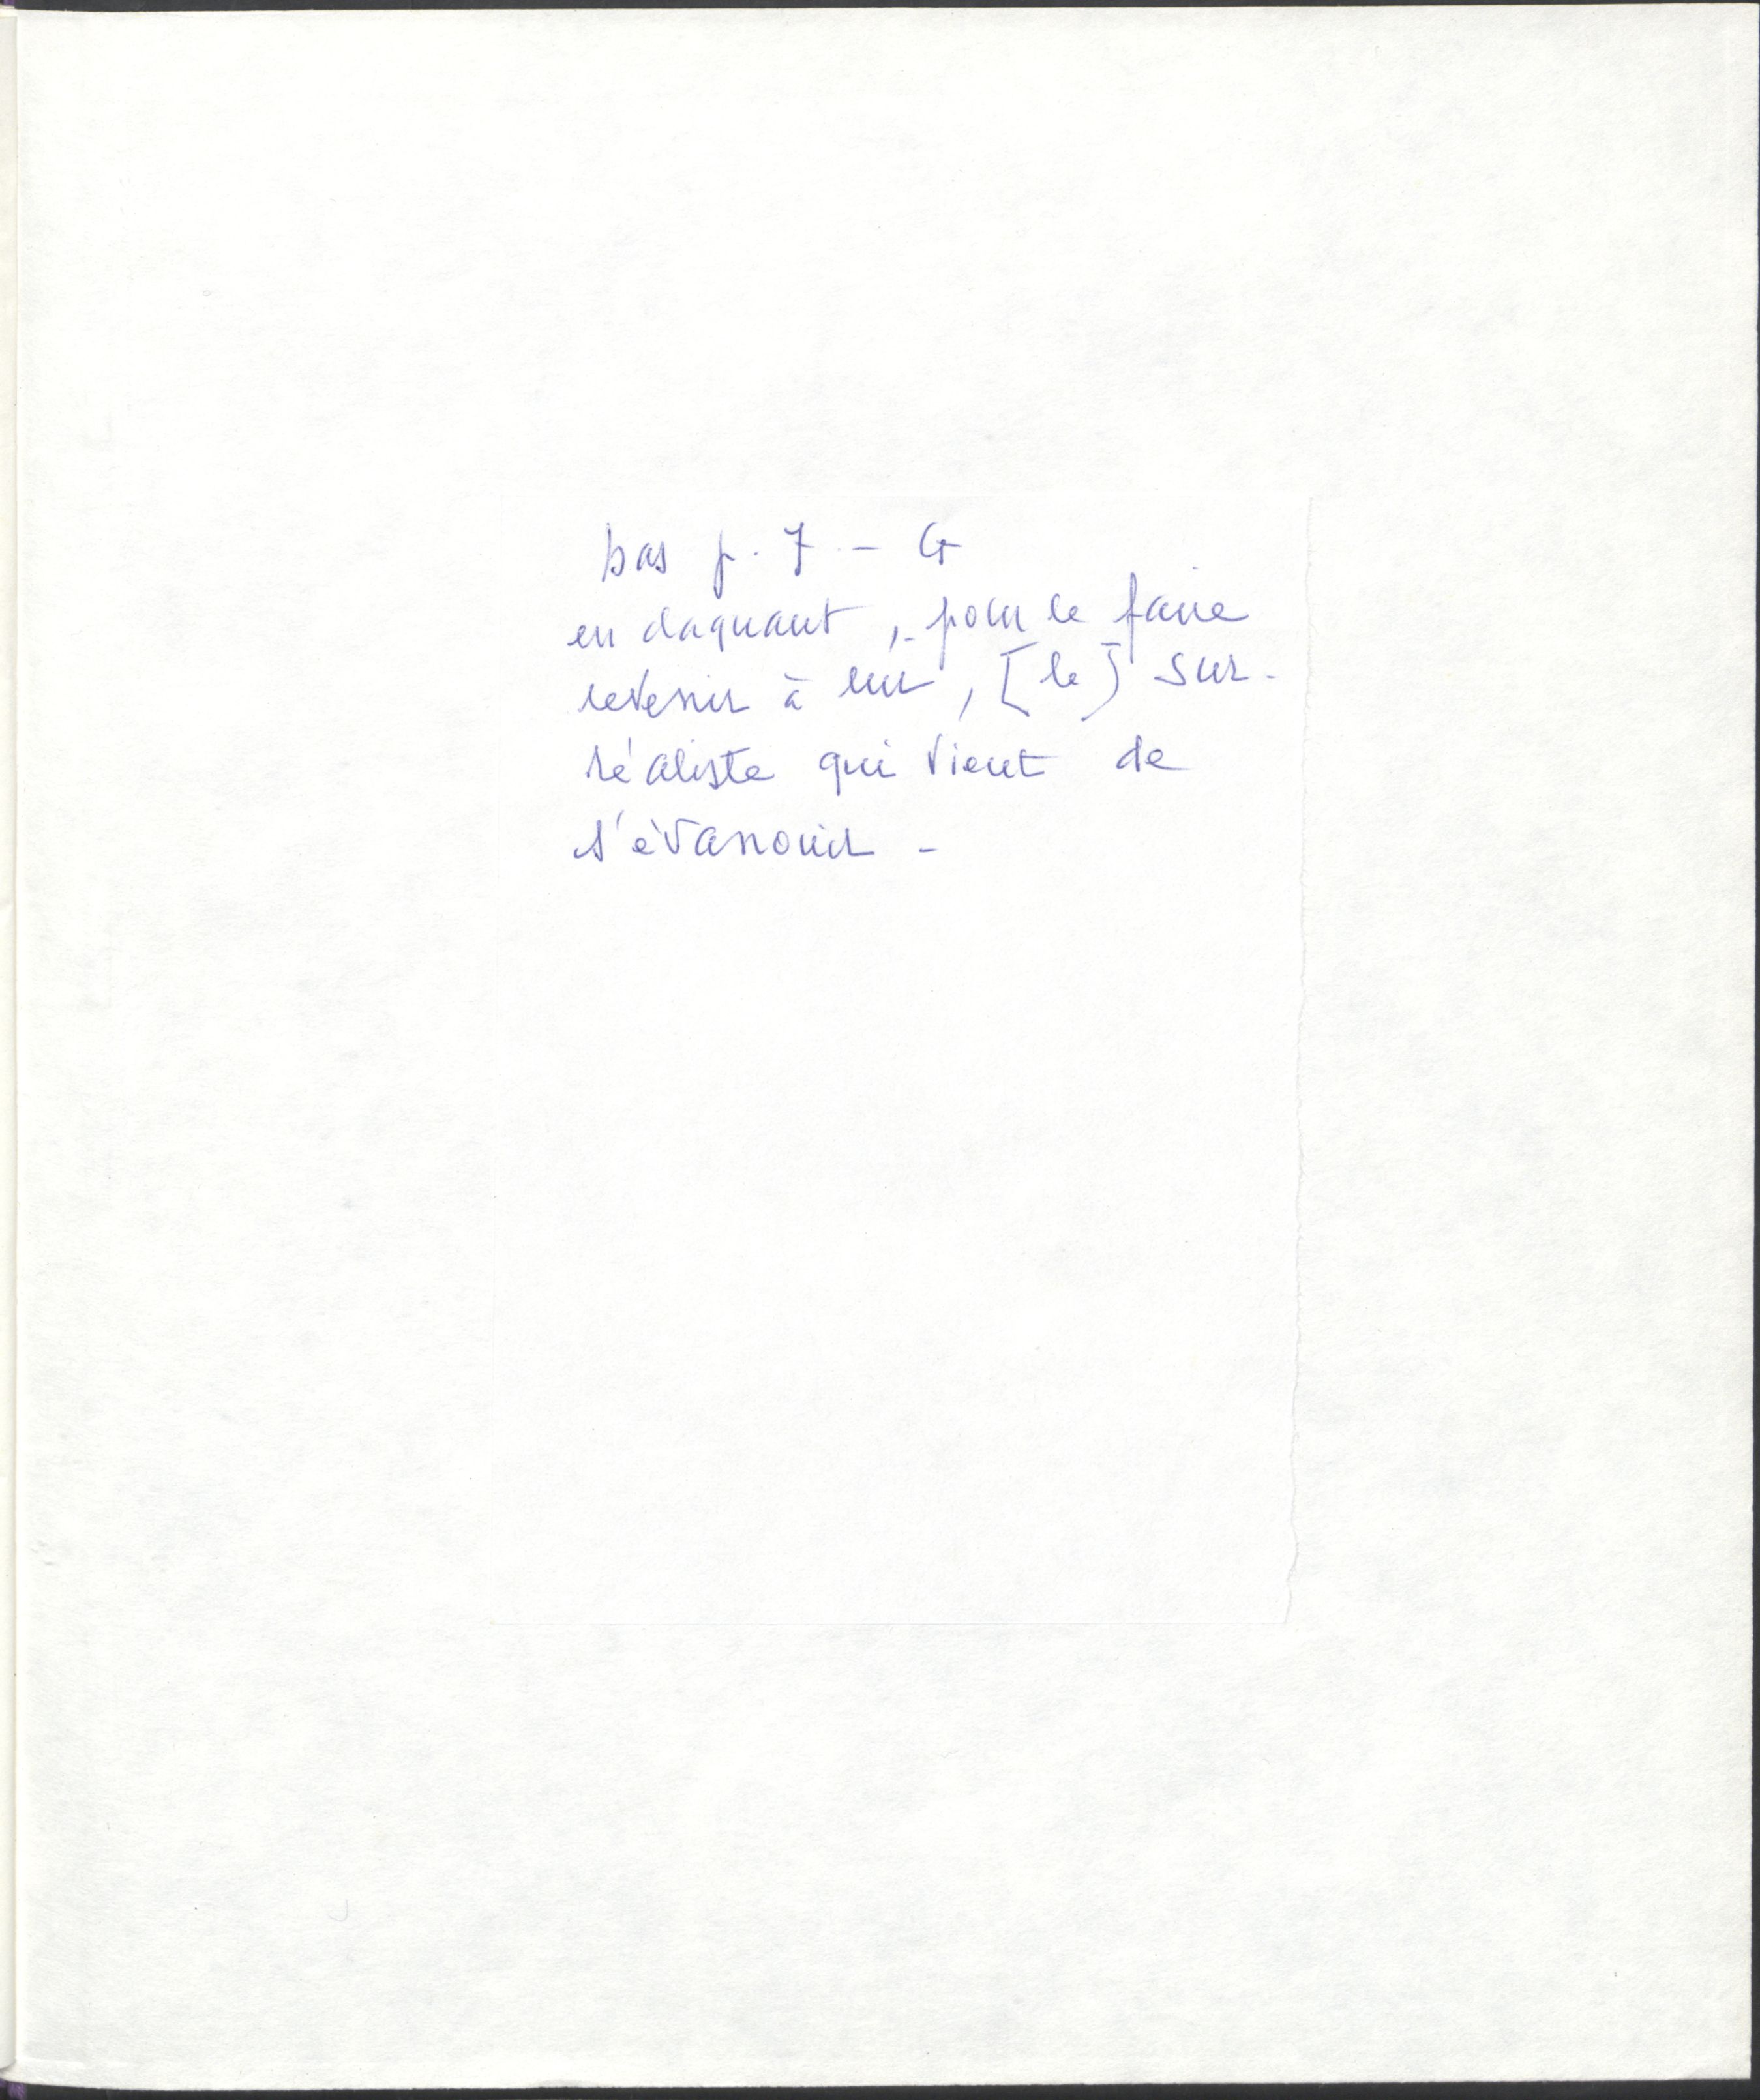 bas p. 7 - G
en claquant, pour le faire
revenir à lui, [le] sur-
réaliste qui vient de
s'évanouir -